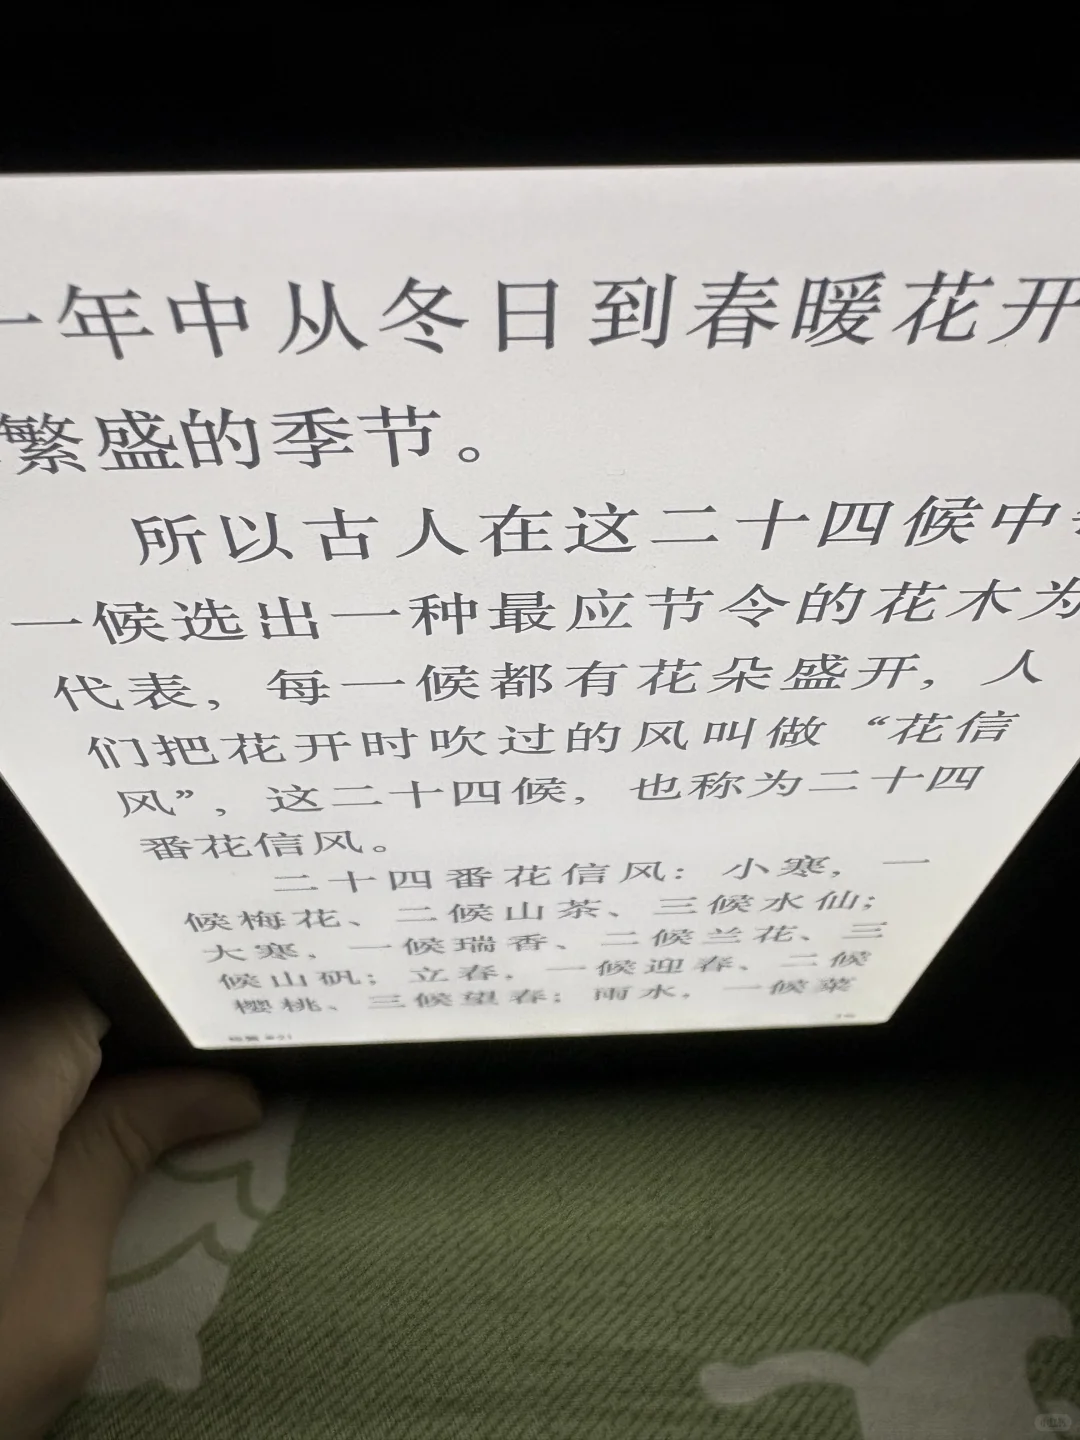 一年中从冬日到春暖花开
繁盛的季节。
所以古人在这二十四候中
一候选出一种最应节令的花木为
代表，每一候都有花朵盛开，人
们把花开时吹过的风叫做“花信
风”，这二十四候，也称为二十四
番花信风。
二十四番花信风：小寒，一
候梅花、二候山茶、三候水仙；
大寒，一候瑞香、二候兰花、三
候山矾；立春，一候迎春、二候
樱桃、三候望春；雨水，一候菜